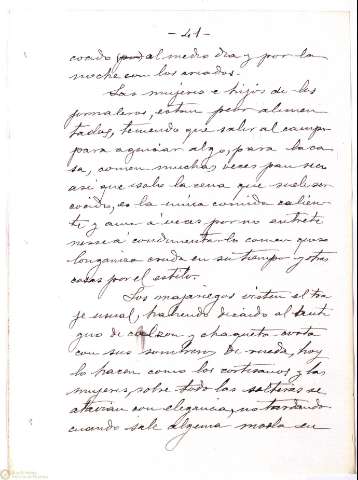 - 41 -
cocido al medio dia y por la
noche con los criados.
Las mujeres e hijos de los
jornaleros, estan peor alimen
tados, teniendo que salir al campo
para agenciar algo, para la ca
sa, comen muchas veces pan seco
asi que solo la cena que suele ser
cocido, es la unica comida calien
te y aun á veces por no entrete
nerse á condimentarla comen queso
longaniza cruda en su tiempo y otras
cosas por el estilo.
Los majariegos visten el tra
je usual, habiendo dejado al anti
guo de calzon y chaqueta corta
con sus sombreros de rueda, hoy
lo hacen como los cortesanos y las
mujeres, sobre todo las solteras se
atavian con elegancia, no tardando
cuando sale alguna moda en